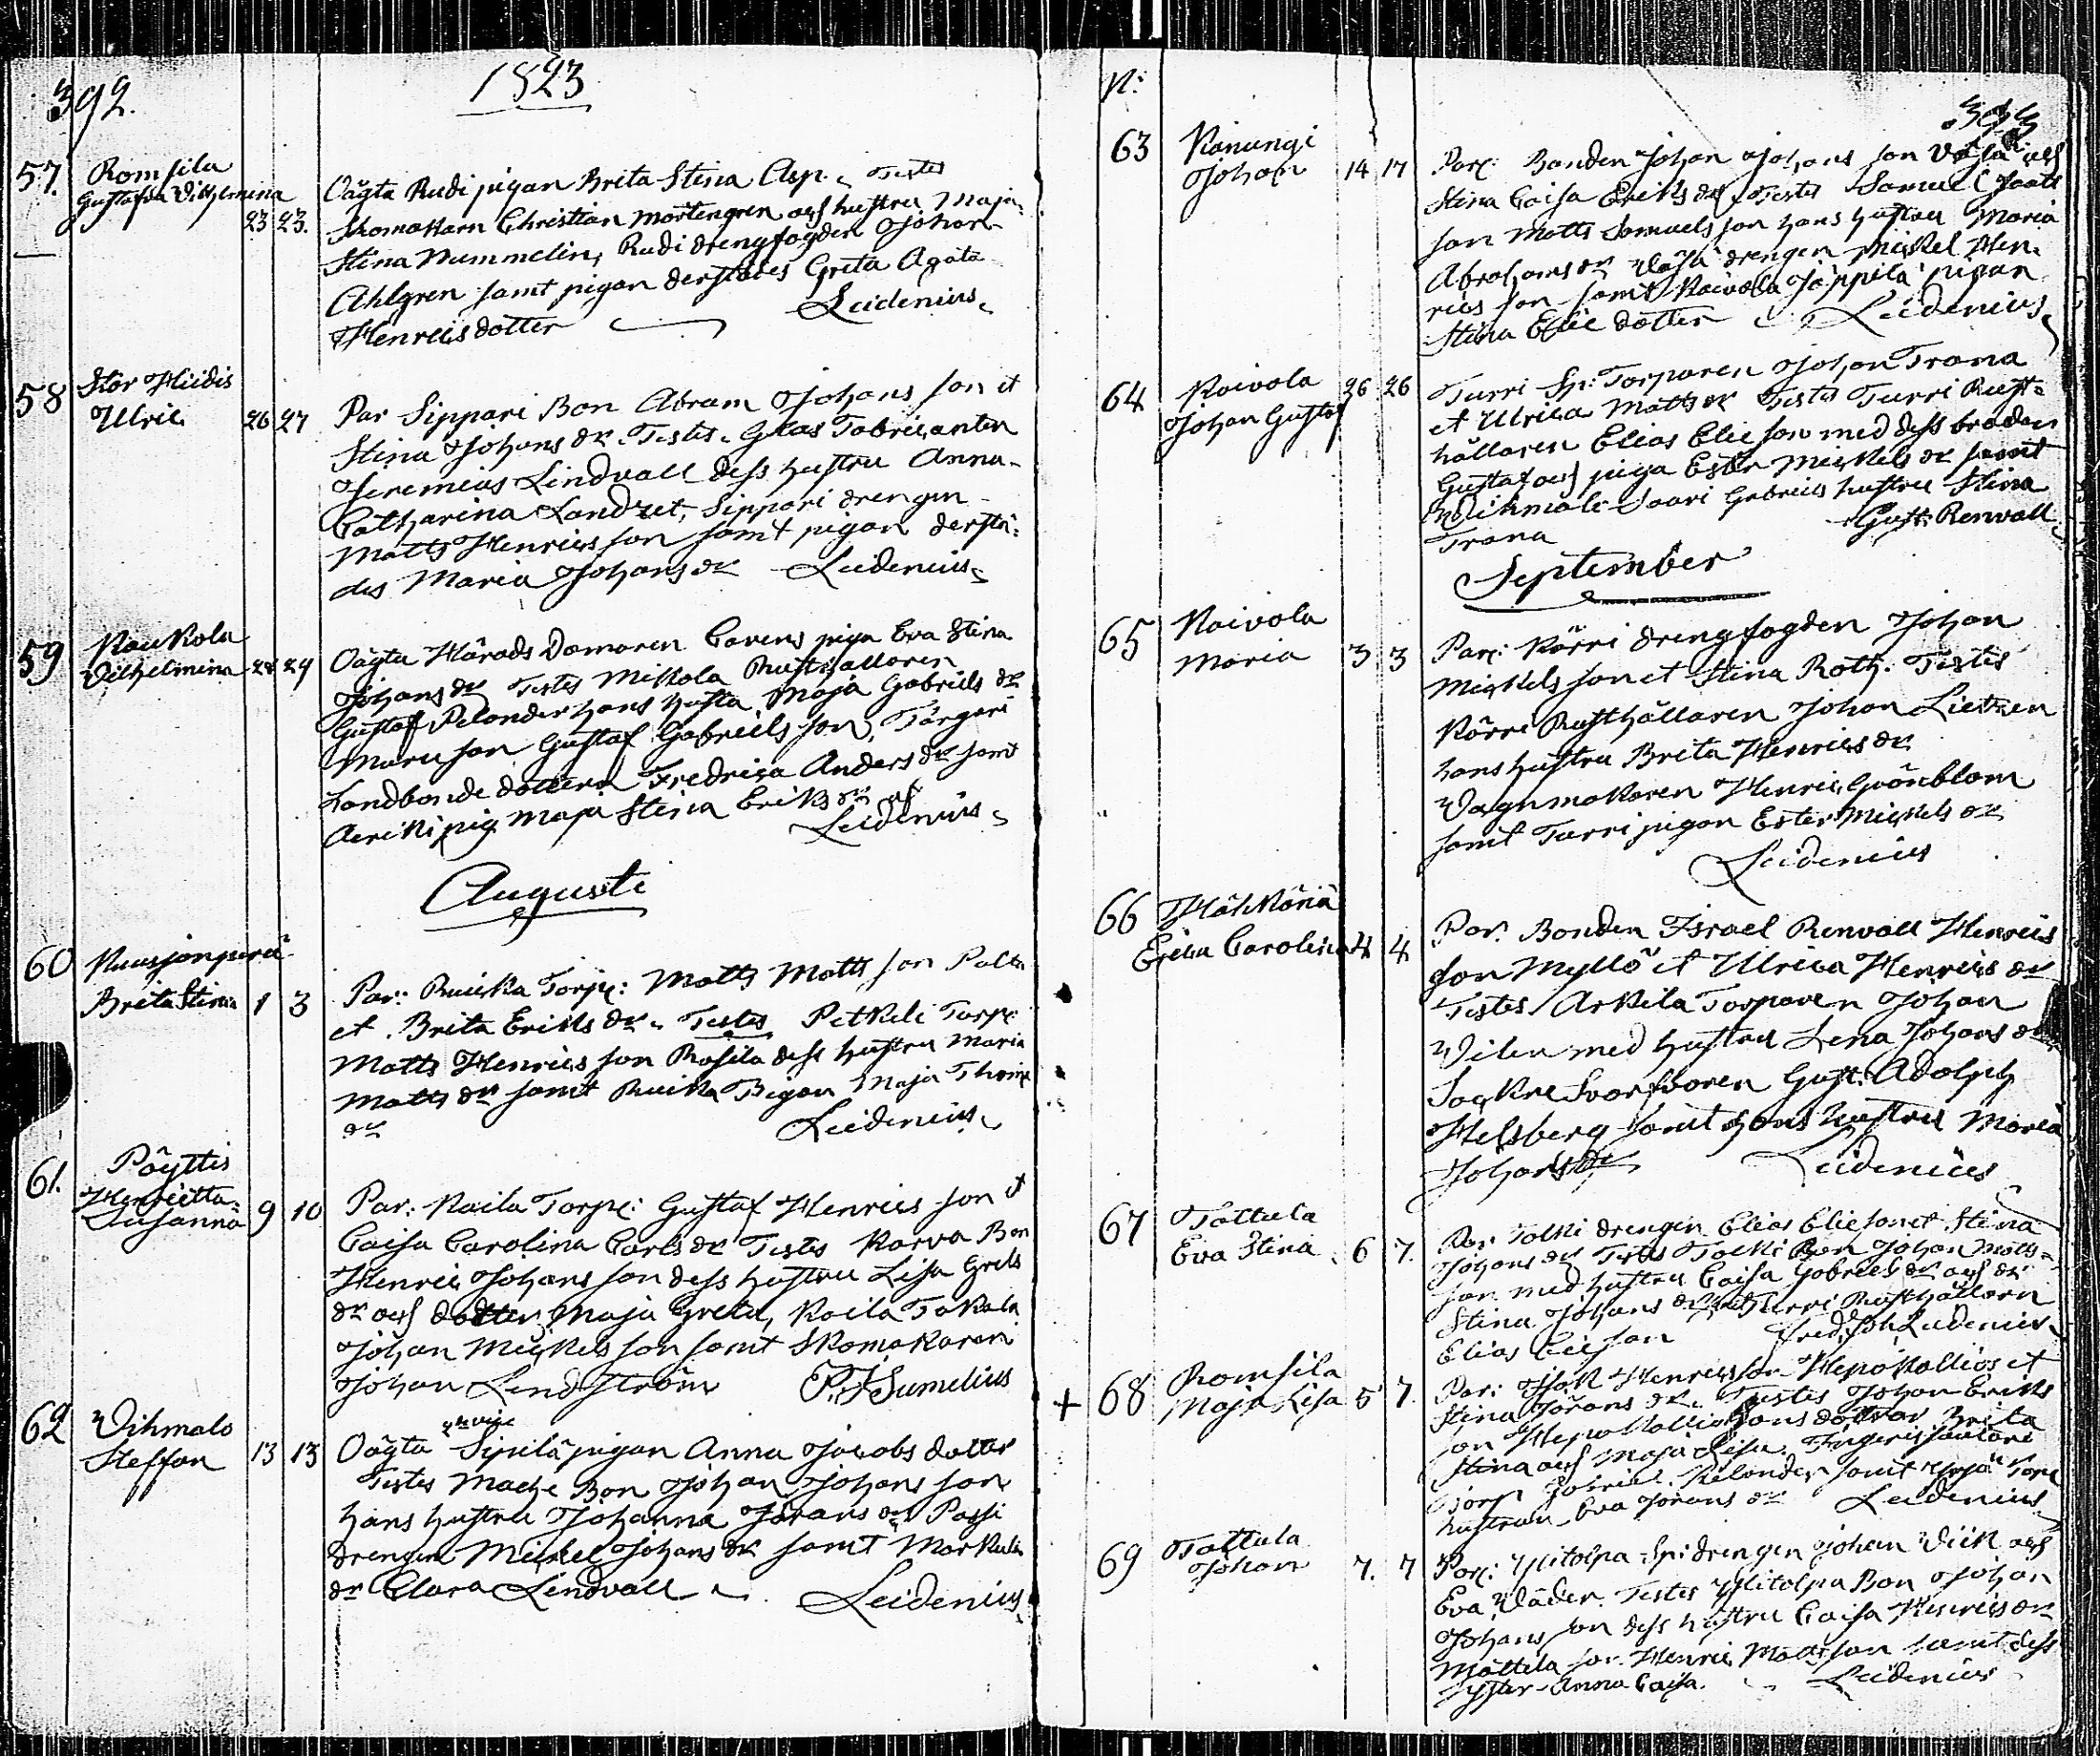 392.
1823
57. Romsila
Gustafva Vilhelmina 23 23.
Oägta Rudi pigan Brita Stina Asp. Testes
Skomakarn Christian Mortengren och hustru Maja
Stina Nummelin, Rudi drengfogden Johan
Ahlgren samt pigan derstädes Greta Agata
Henricsdotter Leidenius
58 Stor Hiidis
Ulric 26 27
Par Sippari Bon Abram Johans son et
Stina Johans dr. Testes. Glas Fabricanten
Jeremias Lindvall dess hustru Anna
Catharina Landzet, Sippari drengen
Matts Henrics son samt pigan derstä-
des Maria Johans dr Leidenius
59 Kaukola
Vilhelmina 28 29
Oägta Härads Domaren Carens piga Eva Stina
Johans dr Testes Mikola Rusthållaren
Gustaf Pelander hans husta Maja Gabriels dr
Maru son Gustaf Gabriels son,
Landbonde dottern Fredrica Anders dr samt
pig Maja Stina Eriks dr
Leidenius
Augusti
60 Kuusjonperä
Brita Stina 1 3
Par: Ruicka Torp: Matts Matts son Palta
et Brita Eriks dr. Testes Petkele Torp:
Matts Henrics son Rosila dess hustru Maria
Matts dr samt Ruicka Pigan Maja Thoms
dr Leidenius
61. Pöyttis
Henrietta
Susanna 9 10
Par: Kaila Torp: Gustaf Henrics son et
Caisa Carolina Carls dr Testes Karva Bon
Henric Johans son dess hustru Lisa Grels
dr och dotter Maja Greta, Kaila Takala
Johan Mickels son samt Skomakaren
Johan Lindström P. J. Sumelius
62 Vihmalo
Steffan 13 13
2dra vige
Oägta Sipilä pigan Anna Jacobs dotter
Testes Mache Bon Johan Johans son
hans hustru Johanna Jörans dr Passi
drengen Mickel Johans dr samt Markula
dr Clara Lindvall Leidenius
N:
393
63 Kanungi
Johan 14 17
Par: Bonden Johan Johans son Väsä och
Stina Caisa Eriks dr Testes Samuel
son Matts Samuels son hans hustru Maria
Abrahams dr Väsä drengen Mickel Hen-
rics son samt Koivola Jäppilä pigan
Stina Elie dotter Leidenius
64 Koivola
Johan Gustaf 26 26
Turri Sp: Torparen Johan Trana
et Ulrica Matts dr Testes Turri Rust-
hållaren Elias Elie son med dess broder
Gustaf och piga Ester Mickels dr samt
Vihmalo Saari Gabriels hustru Stina
Trana Gust: Renvall
September
65 Koivola
Maria 3 3
Par: Körri drengfogden Johan
Mickels son et Stina Roth. Testes
Körri Rusthållaren Johan Lietzen
hans hustru Brita Henrics dr
Vagnmakaren Henric Grönblom
samt Turri pigan Ester Mickels dr
Leidenius
66
Erica Carolina 4 4
Par: Bonden Israel Renvall Henrics
son Myllö et Ulrica Henrics dr
Testes Arkila Torparen Johan
Vilen med hustru Lena Johans dr
Sockne Svarfvaren Gust: Adolph
Helsberg samt hans hustru Maria
Johans dr Leidenius
67 Tattula
Eva Stina 6 7.
Par: Tolki drengen Elias Elie son et Stina
Johans dr Testes Tolki Bon Johan Matts
son med hustru Caisa Gabriels dr och dr
Stina Johans dr samt Turri Rusthållarn
Elias Elie son Fred. Joh. Leidenius
+ 68 Romsila
Maja Lisa 5 7.
Par: Isak Henrics son Hepokallios et
Stina Jörans dr. Testes Johan Eriks
son Hepokallio hans döttrar Brita
Stina och Maja Lisa.
Gabriel Kelander samt
hustrun Eva Jörans dr Leidenius
69 Tattula
Johan 7. 7
Par: Ylitolpa Sp: drengen Johan Viik och
Eva Väder. Testes Ylitolpa Bon Johan
Johans son dess hustru Caisa Henrics dr
Mattila son Henric Matts son samt dess
syster Anna Caisa. Leidenius